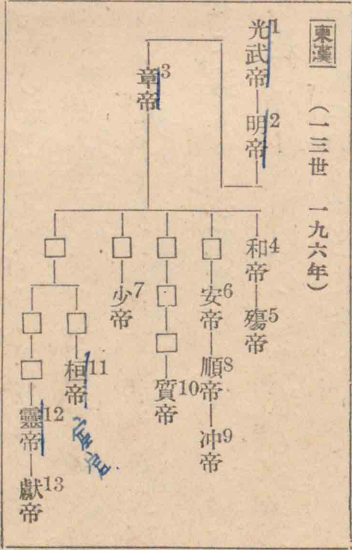 東漢
（一三世　一九六年）
光武帝1
明帝2
章帝3
和帝4
殤帝5
安帝6
順帝8
冲帝9
質帝10
少帝7
桓帝11
靈帝12
獻帝13